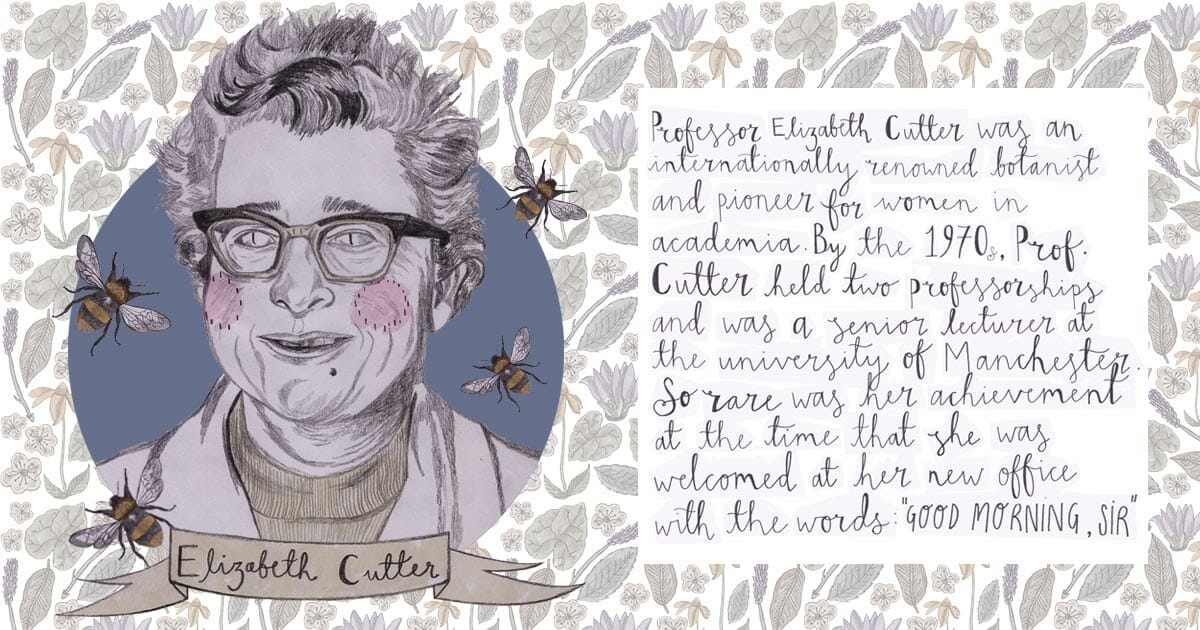 Elizabeth Cutter
Professor Elizabeth Cutter was an
internationally renowned botanist
and pioneer for women in
academia. By the 1970s, Prof.
Cutter held two professorships
and was a senior lecturer at
the university of Manchester.
So rare was her achievement
at the time that she was
welcomed at her new office
with the words: "GOOD MORNING, SIR"